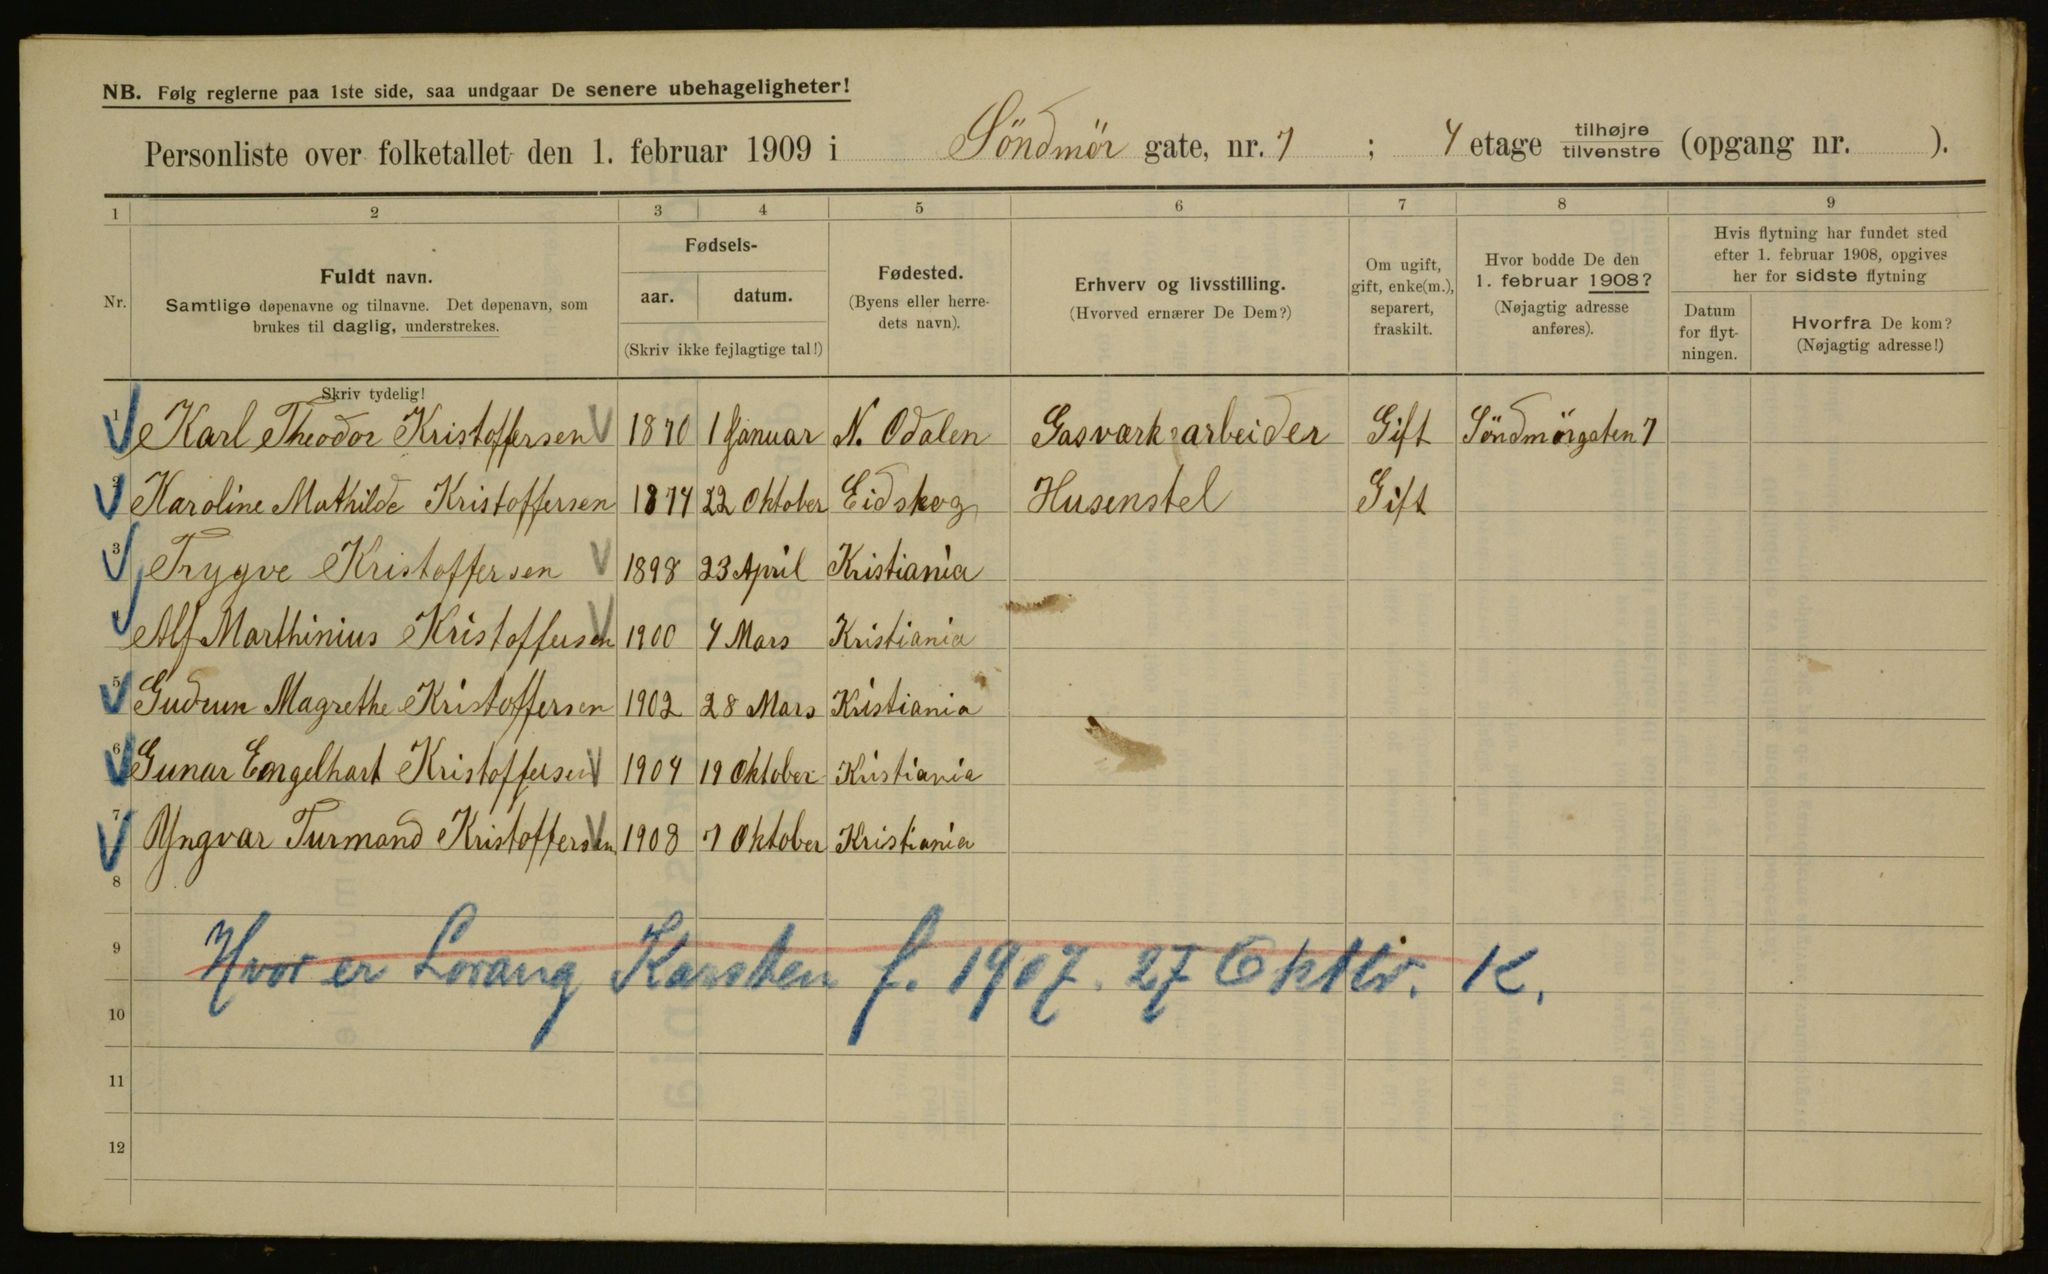 NB. Følg reglerne paa 1ste side, saa undgaar De senere ubehageligheter!
Personliste over folketallet den 1. februar 1909 i Söndmör gate, nr. 7 ; 4 etage tilhøjre tilvenstre (opgang nr. ).
1 2 3 4 5 6 7 8 9
Nr.
Fuldt navn.
Samtlige døpenavne og tilnavne. Det døpenavn, som
brukes til daglig, understrekes.
Fødsels-
aar. datum.
(Skriv ikke fejlagtige tal!)
Fødested.
(Byens eller herre-
dets navn).
Erhverv og livsstilling.
(Hvorved ernærer De Dem?)
Om ugift,
gift, enke(m.),
separert,
fraskilt.
Hvor bodde De den
1. februar 1908?
(Nøjagtig adresse
anføres).
Hvis flytning har fundet sted
efter 1. februar 1908, opgives
her for sidste flytning
Datum
for flyt-
ningen.
Hvorfra De kom?
(Nøjagtig adresse!)
Skriv tydelig!
1 Karl Theodor Kristoffersen 1870 1 Januar N. Odalen Gasværksarbeider Gift Söndmörgaten 7
2 Karoline Mathilde Kristoffersen 1874 22 Oktober Eidskog Husenstel Gift
3 Trygve Kristoffersen 1898 23 April Kristiania
Alf Marthinius Kristoffersen 1900 4 Mars Kristiania
5 Gudrun Magrethe Kristoffersen 1902 28 Mars Kristiania
6 Gunar Engelhart Kristoffersen 1904 19 Oktober Kristiania
7 Yngvar Turmand Kristoffersen 1908 7 Oktober Kristiania
8
9 Hvor er Lorang Karsten f. 1907. 27 Oktbr. K.
10
11
12